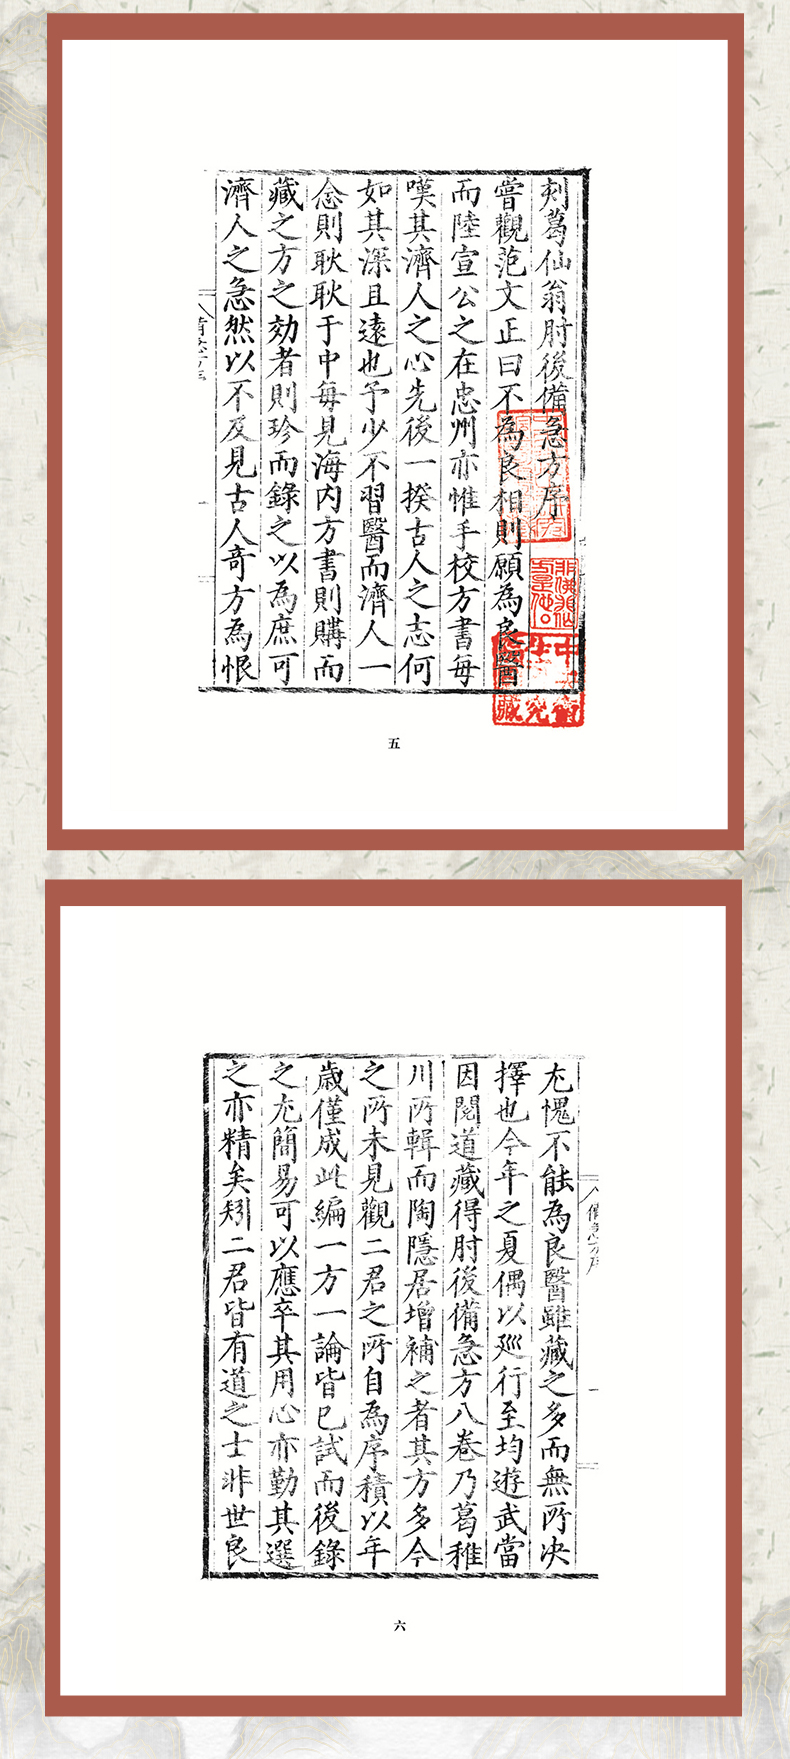 刻葛仙翁肘後備急方序
嘗觀范文正曰不為良相則願為良醫
而陸宣公之在忠州亦惟手校方書每
嘆其濟人之心先後一揆古人之志何
如其深且遠也予少不習醫而濟人一
念則耿耿于中每見海內方書則購而
藏之方之効者則珍而錄之以為庶可
濟人之急然以不及見古人奇方為恨
五
尢愧不能為良醫雖藏之多而無所决
擇也今年之夏偶以廵行至均遊武當
因閱道藏得肘後備急方八卷乃葛稚
川所輯而陶隱居增補之者其方多今
之所未見觀二君之所自為序積以年
歲僅成此編一方一論皆已試而後錄
之尢簡易可以應卒其用心亦勤其選
之亦精矣矧二君皆有道之士非世良
六